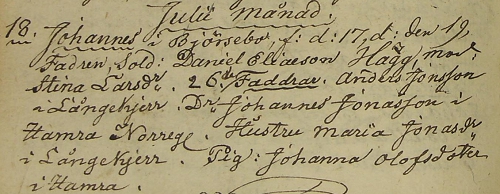 Julii månad.
18. Johannes i Björsebo, f: d: 17, d: den 19,
Fadren, Sold: Daniel Eliaeson Hägg, mod:
Stina Larsdr. 26 år Faddrar. Anders Jonsson
i Långekjerr. Dr. Johannes Jonasson i
Hamra Norreg. Hustru Maria Jonasdr
i Långekjerr. Pig: Johanna Olofsdoter
i Hamra.